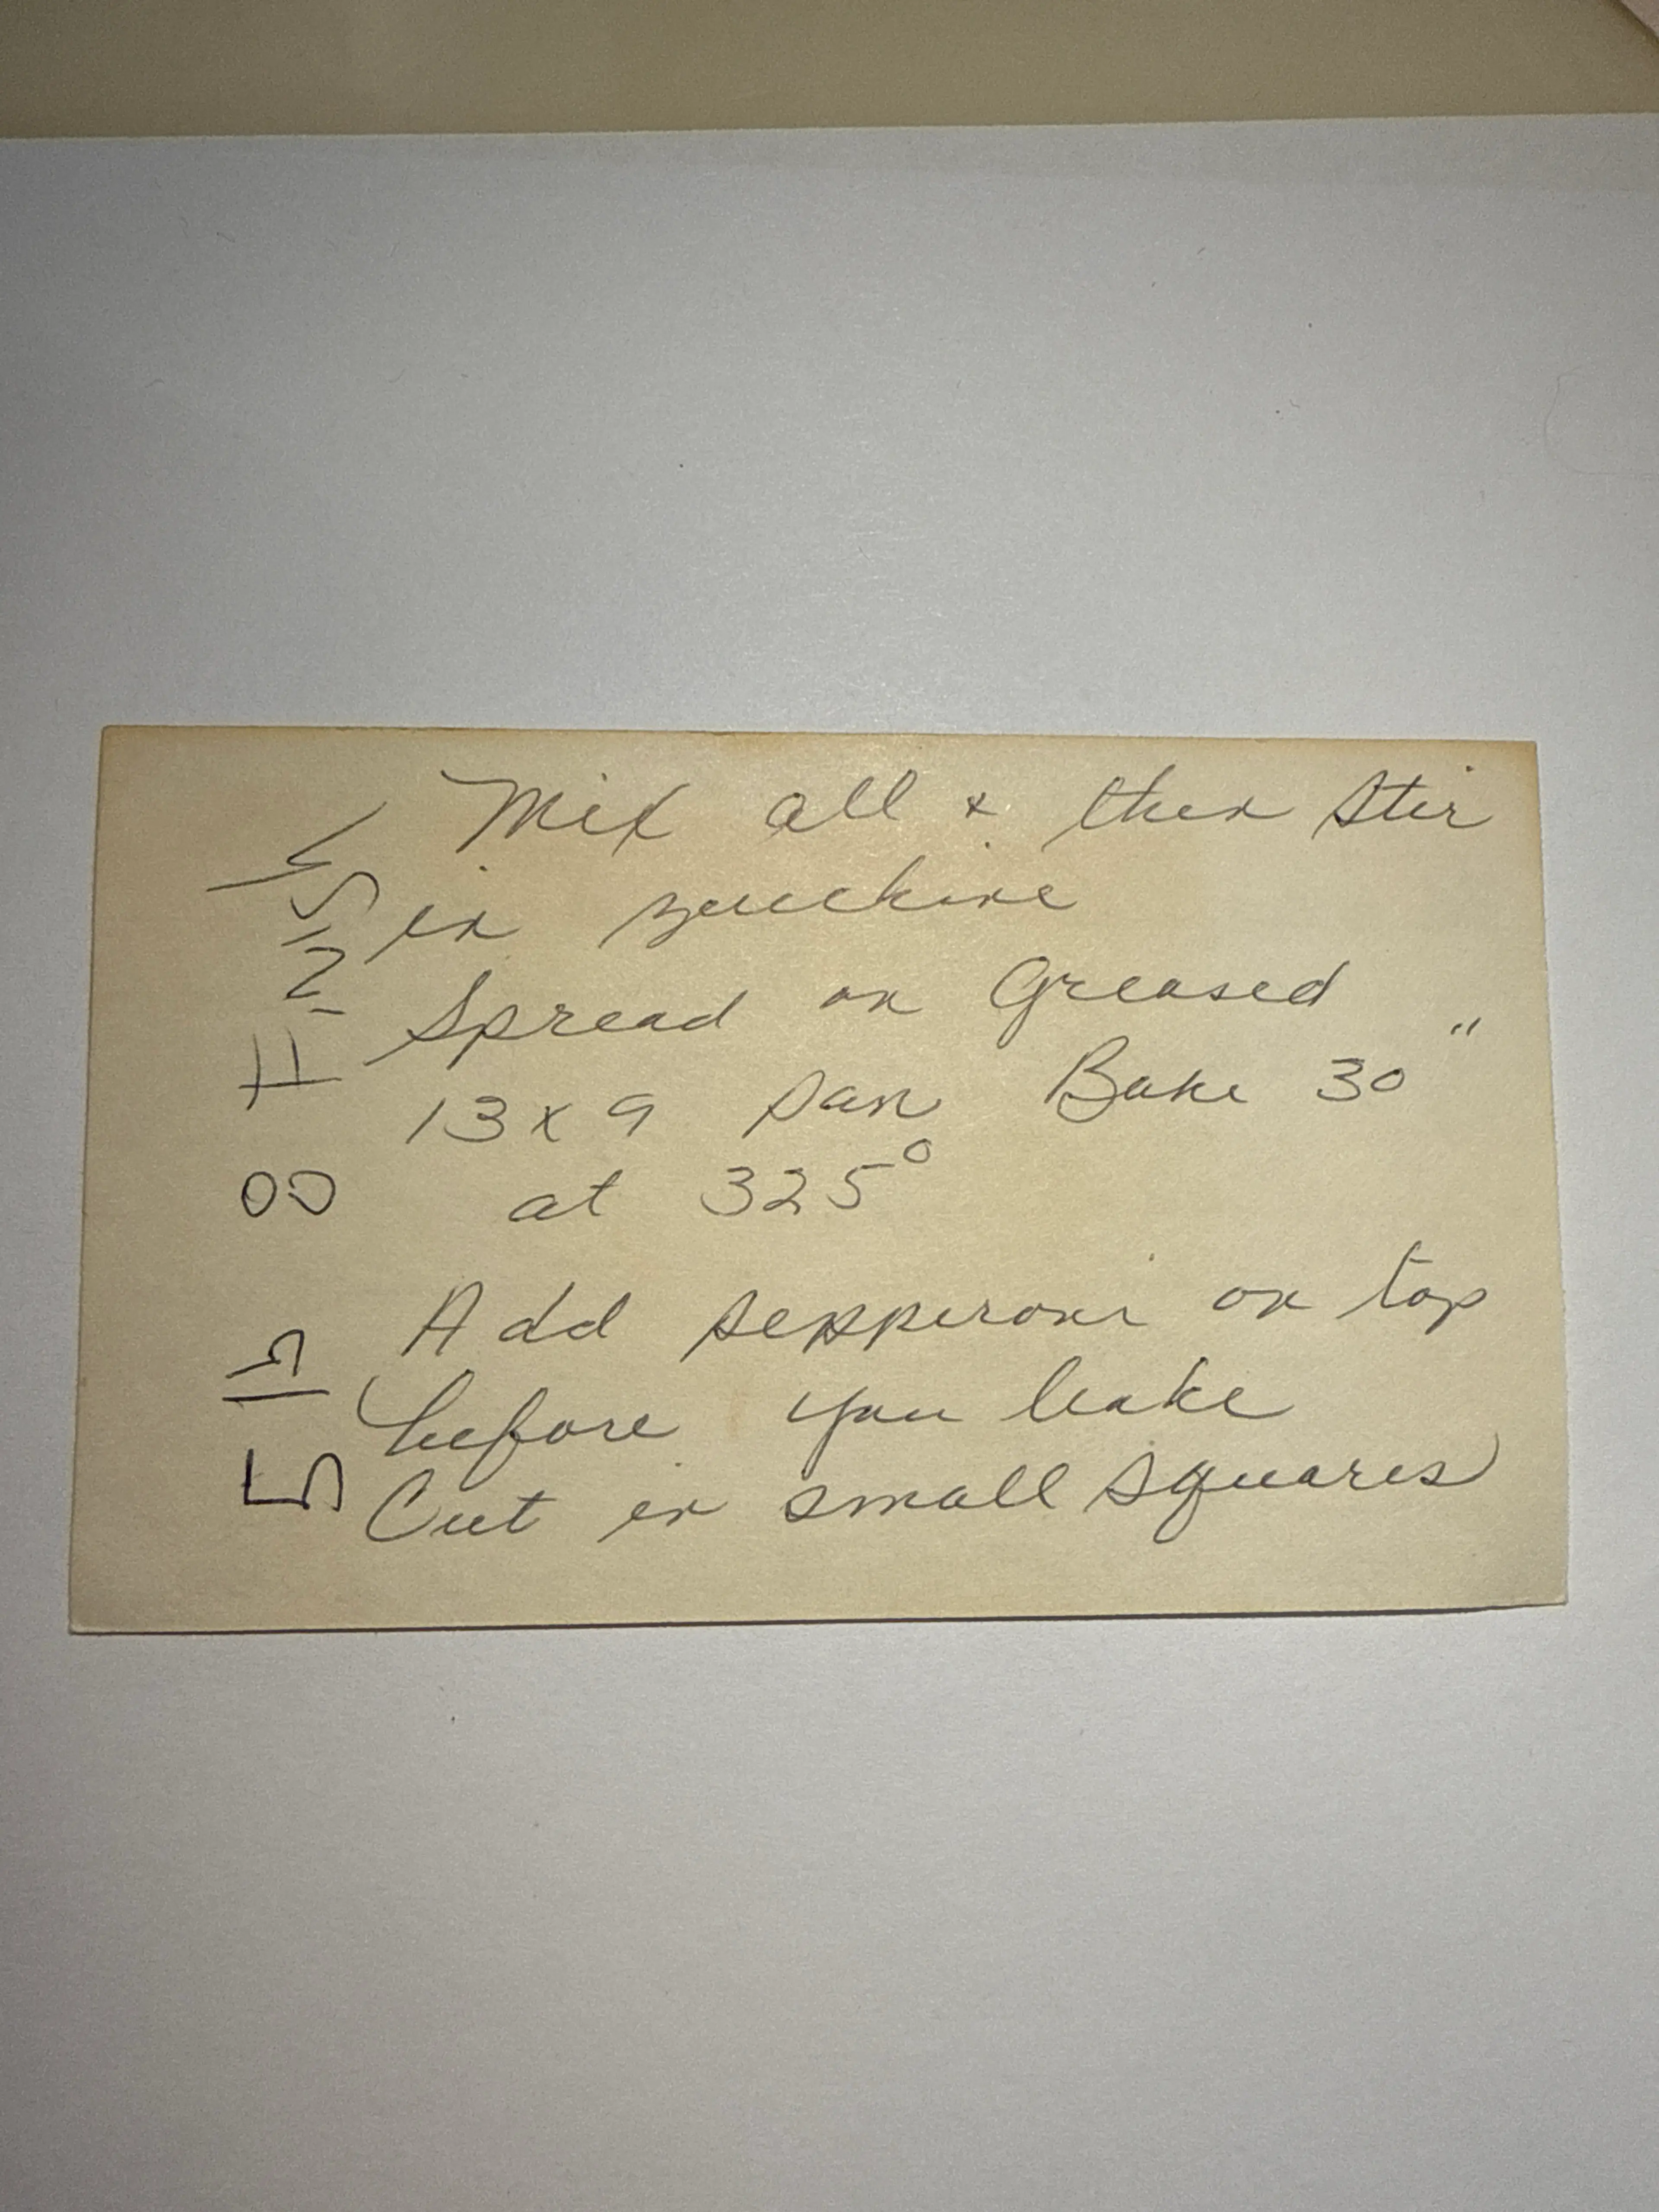 Mix all & then stir
in zucchine
Spread on Greased
13 x 9 pan Bake 30"
at 325°
Add pepperoni on top
before you bake
Cut in small squares